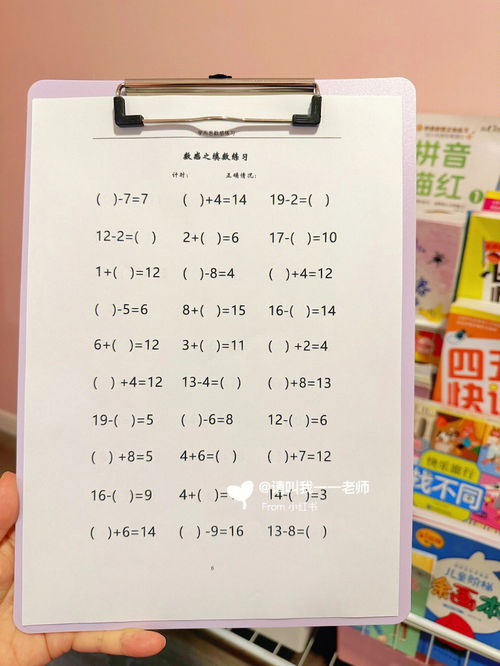 数感之填数练习
计时： 正确情况：
( )-7=7 ( )+4=14 19-2=( )
12-2=( ) 2+( )=6 17-( )=10
1+( )=12 ( )-8=4 ( )+4=12
( )-5=6 8+( )=15 16-( )=14
6+( )=12 3+( )=11 ( )+2=4
( )+4=12 13-4=( ) ( )+8=13
19-( )=5 ( )-6=8 12-( )=6
( )+8=5 4+6=( ) ( )+7=12
16-( )=9 4+( )= 14-( )=3
( )+6=14 ( )-9=16 13-8=( )
6
@请叫我一一老师
From 小红书
拼音
描红
1
四五
快
快乐旅行
找不同
儿童阶梯